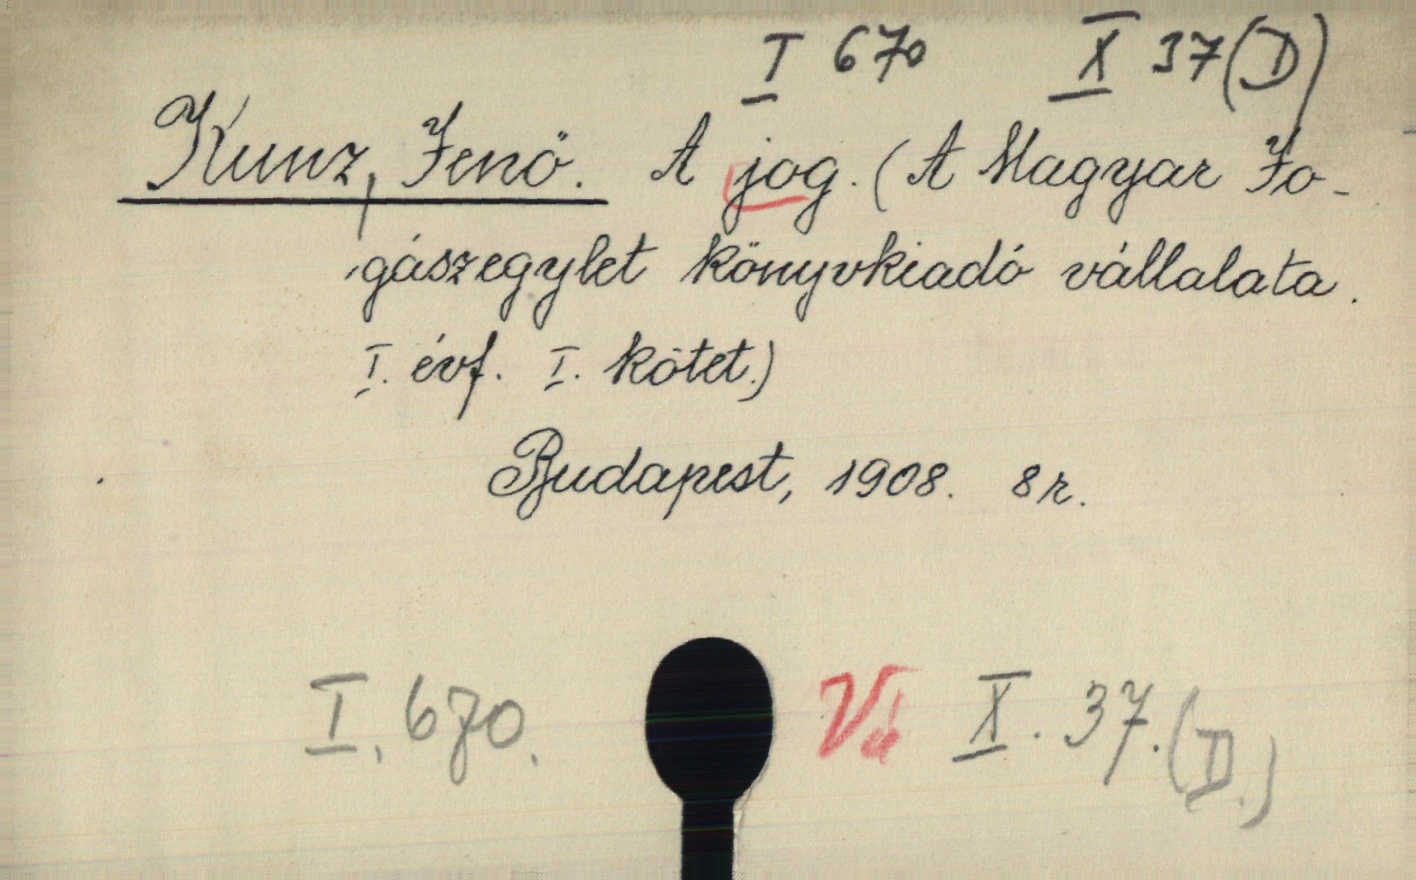 I 670 X 37(D)
Kunz, Jenő. A jog. (A Magyar Jo-
gászegylet könyvkiadó vállalata.
I. évf. I. kötet.)
Budapest, 1908. 8r.
I. 670. Vá X. 37. (D.)